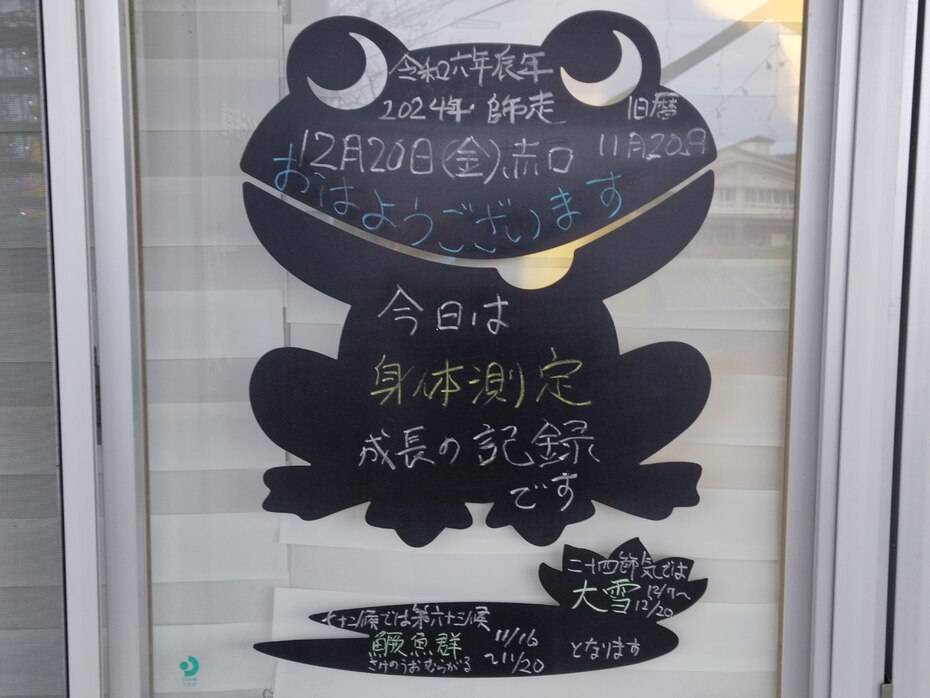 令和六年辰年
2024年・師走
旧暦
12月20日(金)赤口
11月20日
おはようございます
今日は
身体測定
成長の記録
です
二十四節気では
大雪
12/7〜
12/20
七十二候では第六十三候
鱖魚群
さけのうおむらがる
11/16
〜11/20
となります